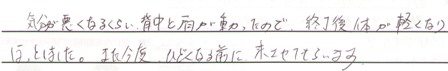 気分が悪くなるくらい背中と肩が動いたので、終了後体が軽くなり
ほっとしました。また今度、ひどくなる前に来させてもらいます